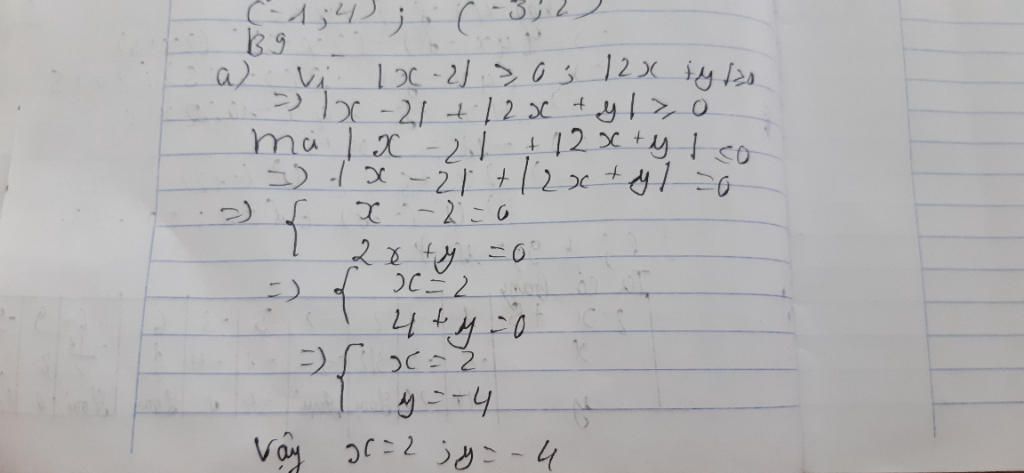 (-1;4); (-3;2)
B9
a) Vì |x-2| ≥ 0; |2x+y|≥0
=> |x-2| + |2x+y| ≥ 0
mà |x-2| + |2x+y| ≤0
=> |x-2| + |2x+y| =0
=> { x-2=0
2x+y=0
=> { x=2
4+y=0
=> { x=2
y=-4
Vậy x=2; y=-4